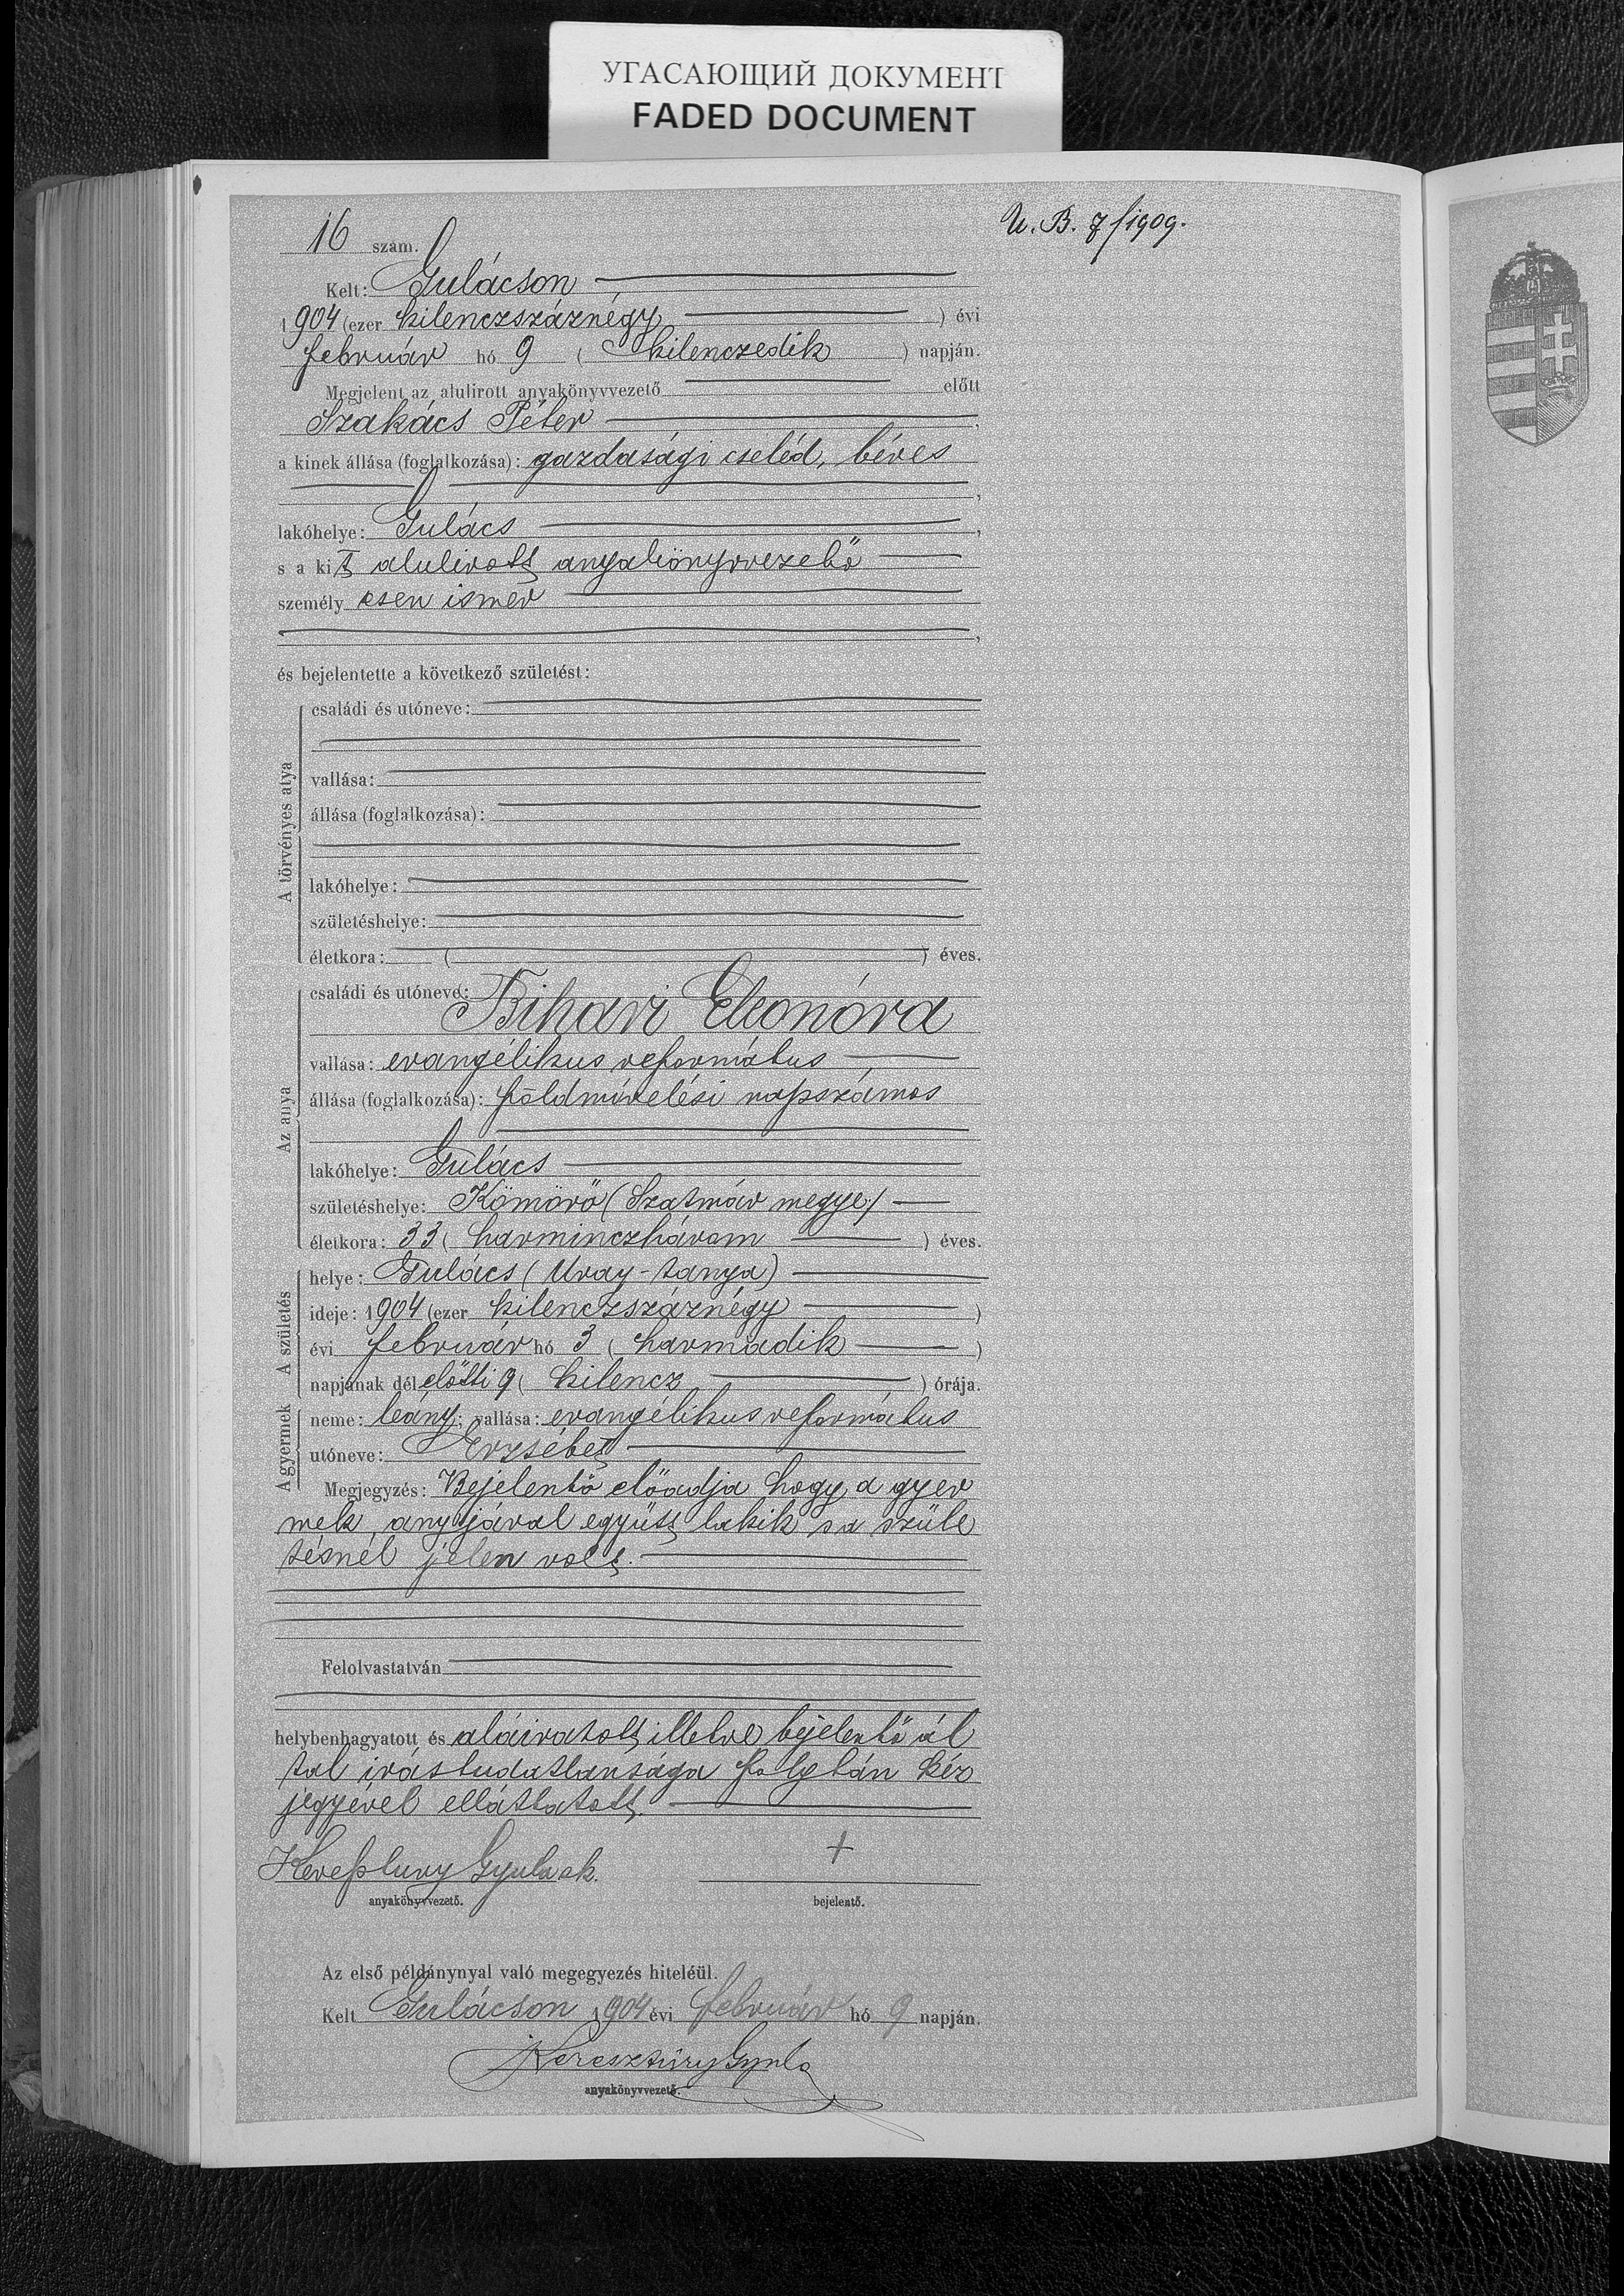 УГАСАЮЩИЙ ДОКУМЕНТ
FADED DOCUMENT
16 szám.
U. B. 7/1909.
Kelt: Gulácson
1904 (ezer kilenczszáznégy ) évi
február hó 9 ( kilenczedik ) napján.
Megjelent az alulirott anyakönyvvezető előtt
Szakács Péter ,
a kinek állása (foglalkozása): gazdasági cseléd, béres
,
lakóhelye: Gulács ,
s a kit alulirott anyakönyvvezető
személy esen ismer
,
és bejelentette a következő születést:
A törvényes atya
családi és utóneve:
vallása:
állása (foglalkozása):
lakóhelye:
születéshelye:
életkora: ( ) éves.
Az anya
családi és utóneve:
Bihari Eleonóra
vallása: evangélikus református
állása (foglalkozása): földmívelési napszámos
lakóhelye: Gulács
születéshelye: Kömörő (Szatmár megye)
életkora: 33 ( harminczhárom ) éves.
A születés
helye: Gulács (Uray-tanya)
ideje: 1904 (ezer kilenczszáznégy )
évi február hó 3 ( harmadik )
napjának dél előtti 9 ( kilencz ) órája.
A gyermek
neme: leány; vallása: evangélikus református
utóneve: Erzsébet
Megjegyzés: Bejelentő előadja hogy a gyer
mek, anyjával együtt lakik s a szüle
tésnél jelen volt.
Felolvastatván
helybenhagyatott és aláiratott, illetve bejelentő ál
tal irástudatlansága folytán kéz
jegyével elláttatott.
Keresztury Gyula sk. +
anyakönyvvezető. bejelentő.
Az első példánynyal való megegyezés hiteléül.
Kelt Gulácson 1904 évi február hó 9 napján.
Keresztúry Gyula
anyakönyvvezető.